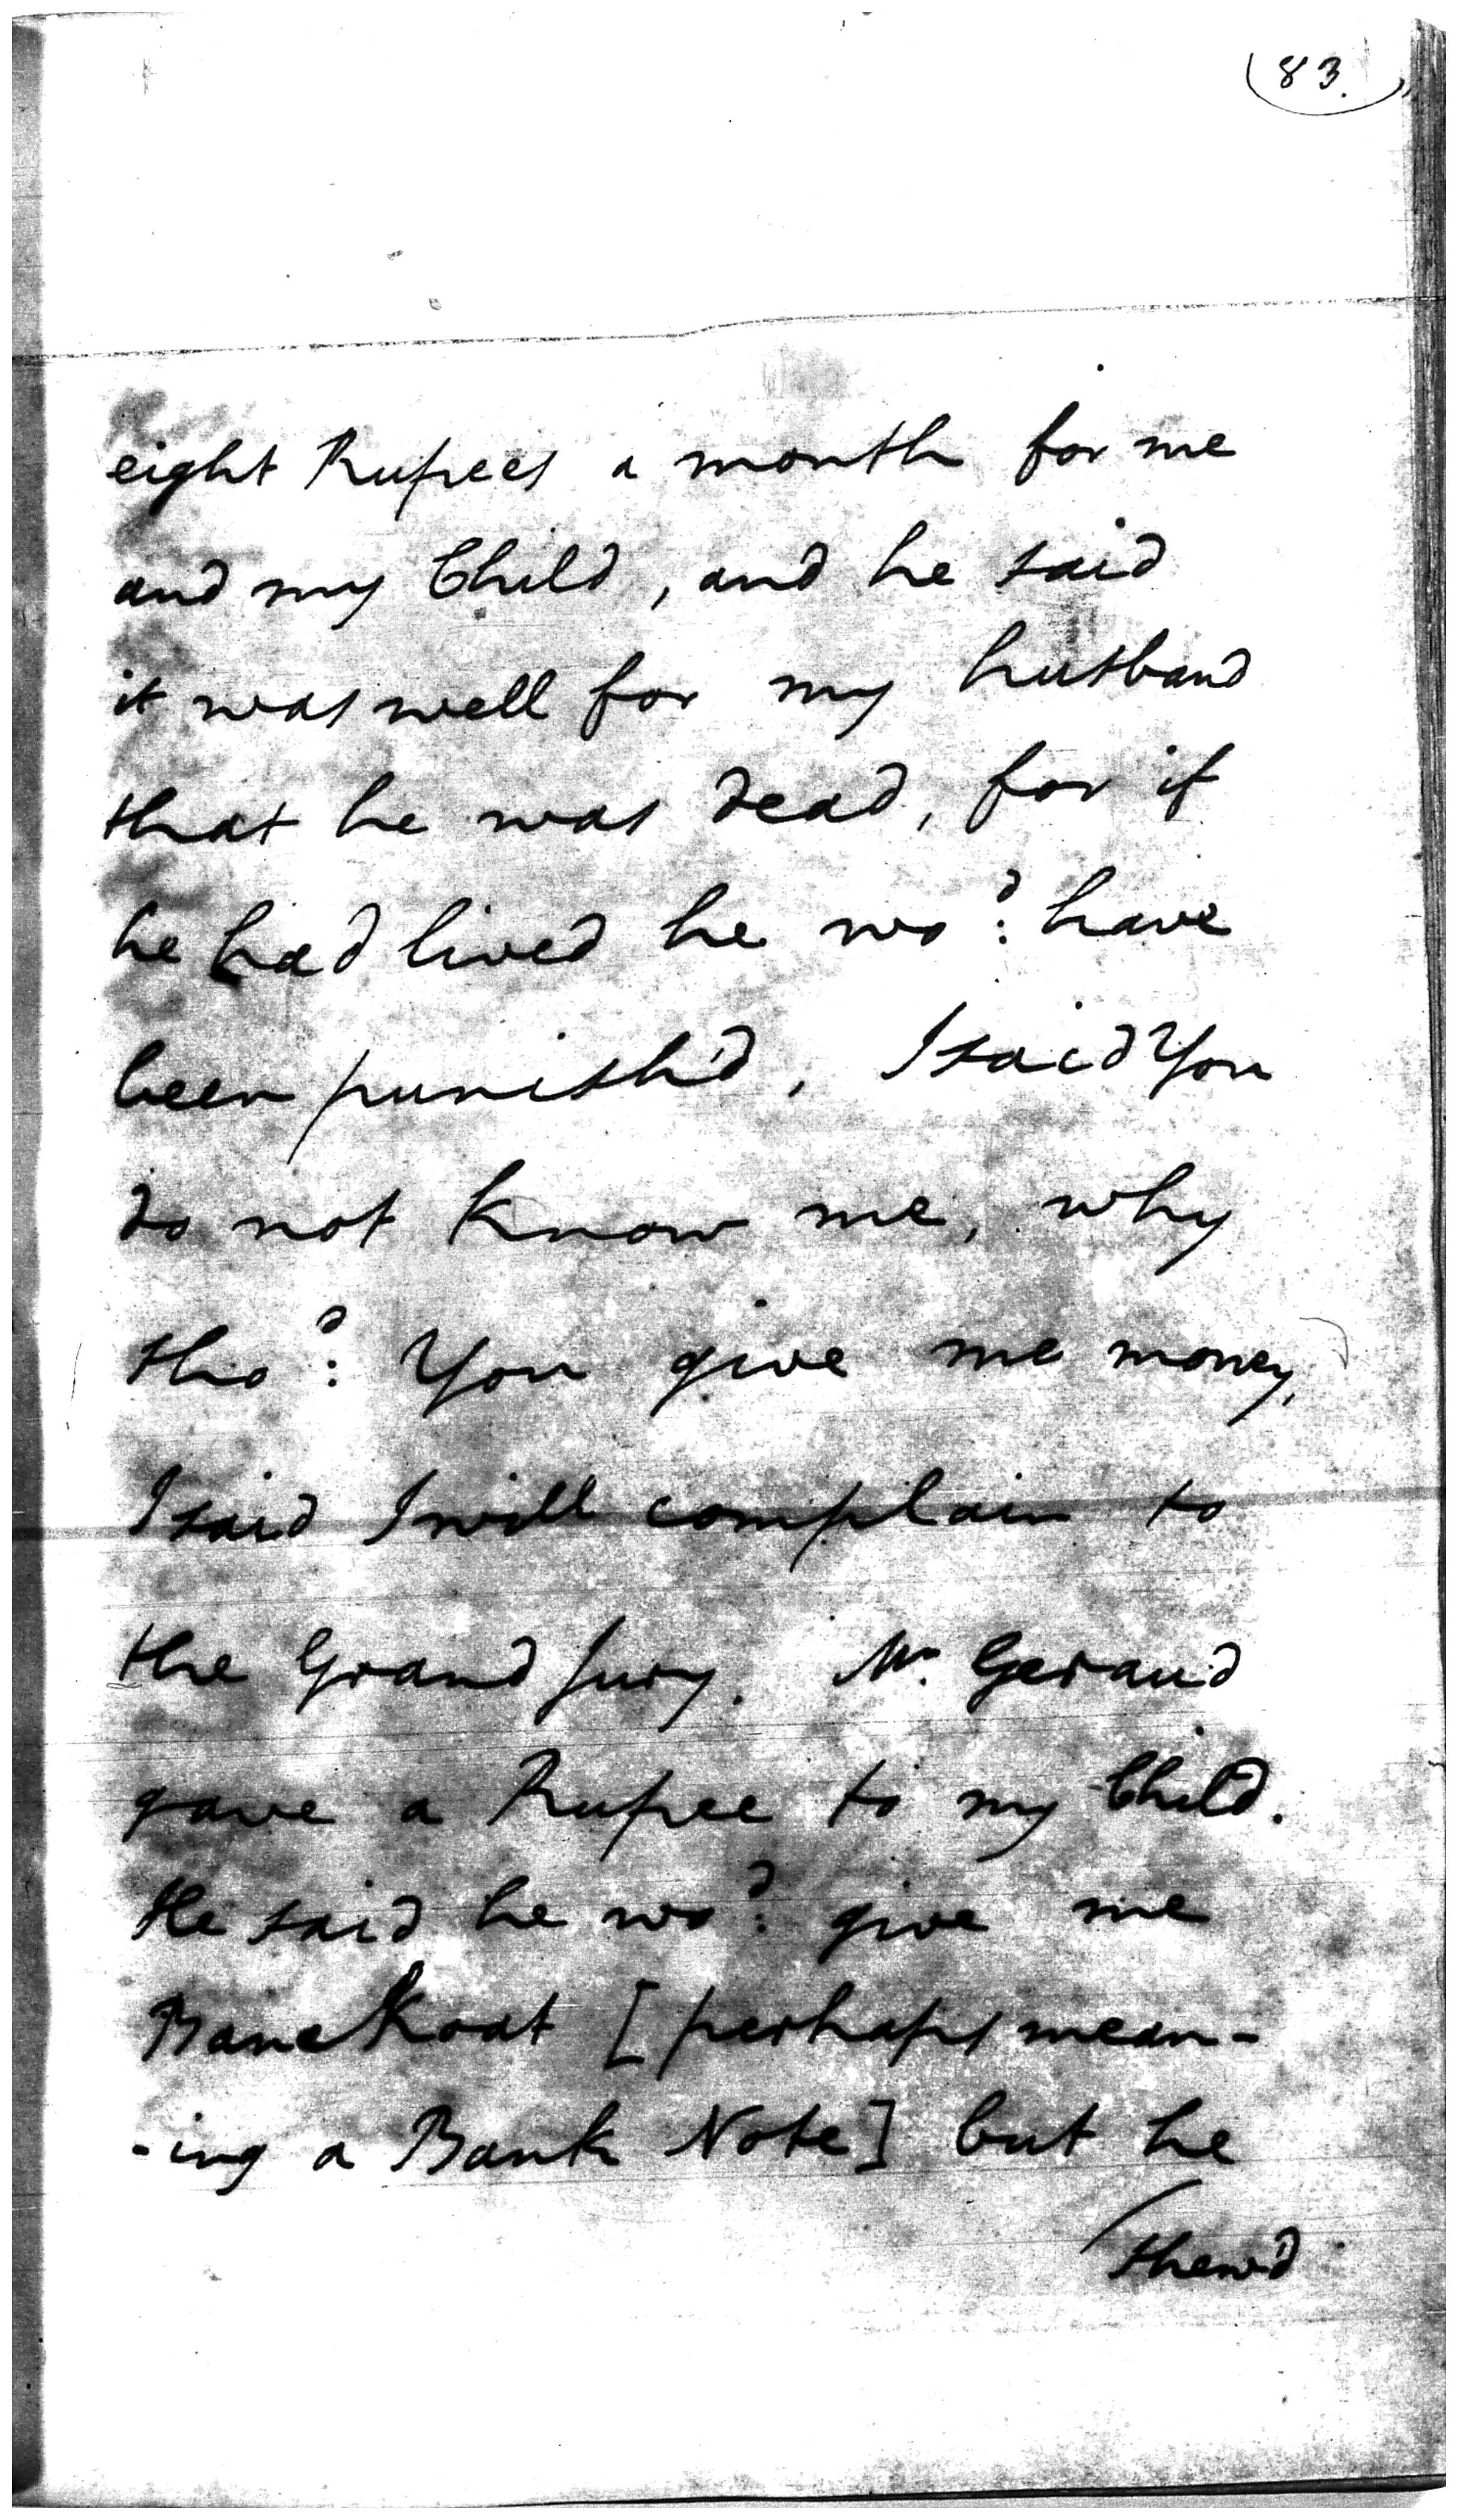 83.
eight Rupees a month for me
and my Child, and he said
it was well for my husband
that he was dead, for if
he had lived he wo:d have
been punish'd, I said You
do not know me, why
sho:d You give me money,
I said I will complain to
the Grand Jury. Mr. Geraud
gave a Rupee to my Child.
He said he wo:d give me
Banckoat [perhaps mean-
-ing a Bank Note] but he
shew'd